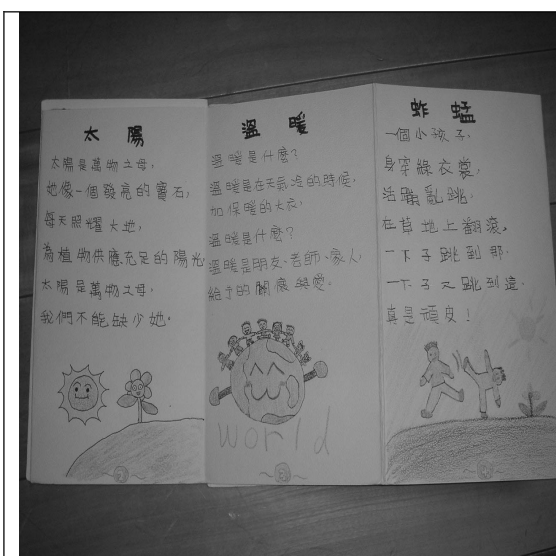 太陽
太陽是萬物之母,
她像一個發亮的寶石,
每天照耀大地,
為植物供應充足的陽光
太陽是萬物之母,
我們不能缺少她。
溫暖
溫暖是什麼?
溫暖是在天氣冷的時候,
加保暖的大衣,
溫暖是什麼?
溫暖是朋友、老師、家人,
給予的關懷與愛。
world
蚱蜢
一個小孩子,
身穿綠衣裳,
活蹦亂跳,
在草地上翻滾,
一下子跳到那,
一下子又跳到這,
真是頑皮!